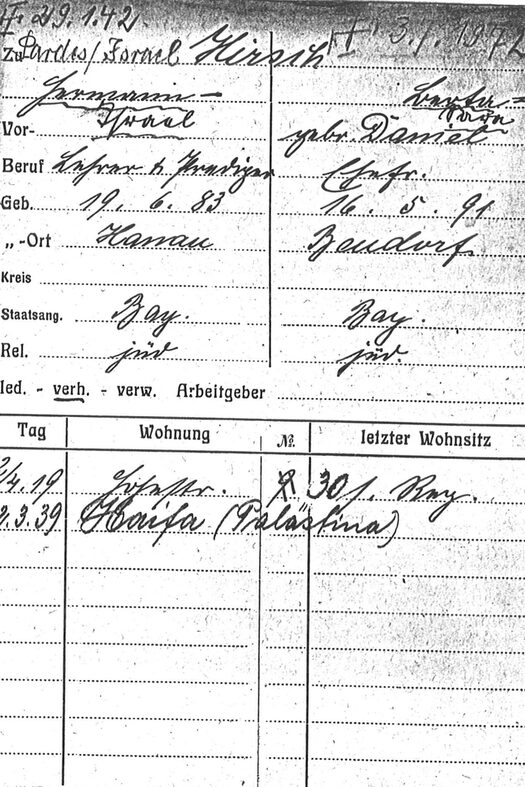 ‡ 29.1.42. ‡ 3. / 1972
Zu Pardes/Israel Hirsch
Hermann - Berta -
Israel Sara
Vor- gebr. Daniel
Beruf Lehrer & Prediger Ehefr.
Geb. 19. 6. 83 16. 5. 91
„-Ort Hanau Bendorf
Kreis
Staatsang. Bay. Bay.
Rel. jüd jüd.
led. - verh. - verw. Arbeitgeber
Tag Wohnung № letzter Wohnsitz
/4.19 30 1. Reg.
2.3.39 Haifa (Palästina)